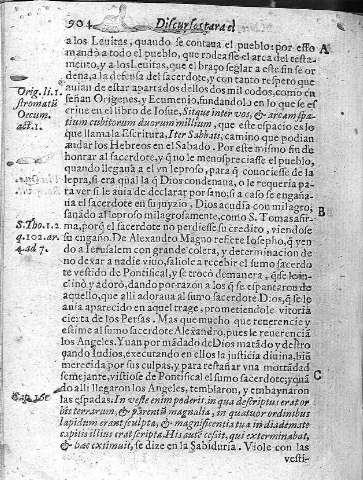 904 Discursos para el
a los Leuitas, quando se contaua el pueblo: por esso
mandò a todo el pueblo, que rodeasse el arca del testa-
mento, y a los Leuitas, que el braço seglar a este fin se or
dena, a la defensa del sacerdote, y con tanto respeto que
auian de estar apartados dellos dos mil codos, como en
señan Origenes, y Ecumenio, fundandolo en lo que se es
criue en el libro de Iosue, Sitque inter vos, & arcam spa-
tium cubitorum duorum millium, que este espacio es lo
que llama la Escritura, Iter Sabbati, camino que podian
andar los Hebreos en el Sabado. Por este mismo fin de
honrar al sacerdote, y q̃ no le menospreciasse el pueblo,
quando llegauà a el vn leproso, para q̃ conociesse de la
lepra, si era qual la q̃ Dios condenaua, o le requeria pa-
ra ver si le auia de declarar por sano, si a caso se engaña-
ua el sacerdote en su juyzio, Dios acudia con milagro,
sanãdo al leproso milagrosamente, como S. Tomas afir-
ma, porq̃ el sacerdote no perdiesse su credito, viendose
su engaño. De Alexandro Magno refiere Iosepho, q̃ yen
do a Ierusalem con grande colera, y determinacion de
no dexar a nadie viuo, saliole a recebir el sumo sacerdo
te vestido de Pontifical, y se trocò de manera, q̃ se le in-
clinò y adorò, dando por razon a los q̃ se espantaron de
aquello, que alli adoraua al sumo sacerdote Dios, q̃ se le
auia aparecido en aquel trage, prometiendole vitoria
cierta de los Persas. Mas que mucho que reuerencie y
estime al sumo sacerdote Alexandro, pues le reuerenciã
los Angeles. Yuan por mãdado de Dios matãdo y destro
çando Iudios, executando en ellos la justicia diuina, biẽ
merecida por sus culpas, y para restañar vna mortãdad
semejante, vistiose de Pontifical el sumo sacerdote, y quã
do alli llegaron los Angeles, temblaron, y embaynaron
las espadas. In veste enim poderis in qua descriptus erat or
bis terrarum, & parentũ magnalia, in quatuor ordinibus
lapidum erant sculpta, & magnificentia tua in diademate
capitis illius erat scripta. His autẽ cessit, qui exterminabat,
& hæc extimuit, se dize en la Sabiduria. Viole con las
vesti-
A
B
C
Orig. li. 1.
stromatũ
Oecum.
act. 1.
S. Tho. 1. 2
q. 102. ar.
4. ad 7.